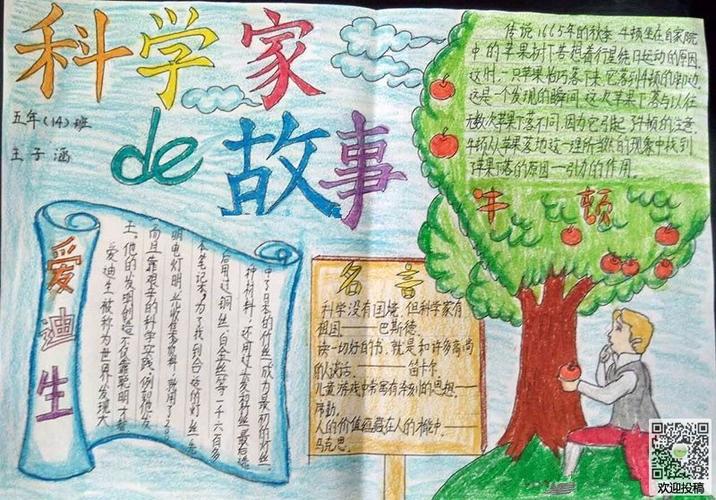 科学家
de 故事
五年(14)班
王子涵
传说1665年的秋季,牛顿坐在自家院
中的苹果树下苦想着行星绕日运动的原因.
这时,一只苹果恰巧落下来,它落到牛顿的脚边.
这是一个发现的瞬间,这次苹果下落与以往
无数次苹果下落不同,因为它引起了牛顿的注意.
牛顿从苹果落地这一理所当然的现象中找到
苹果下落的原因—引力的作用。
牛顿
爱迪生
爱迪生被称为世界发明大
王。他的发明创造不仅靠聪明才智
而且靠艰辛的科学实践。例如他发
明电灯时,光收集资料,就用了200
本笔记本;为了找到合适的灯丝,先
后用过铜丝、白金丝等一千六百多
种材料,还用过头发和丝,最后选
中了日本的竹丝成为最初的灯丝.
名言
科学没有国境,但科学家有
祖国——巴斯德.
读一切好的书,就是和许多高尚
的人谈话.——笛卡尔.
儿童游戏中常寓有深刻的思想—
席勒.
人的价值蕴藏在人的才能中.——
马克思.
欢迎投稿